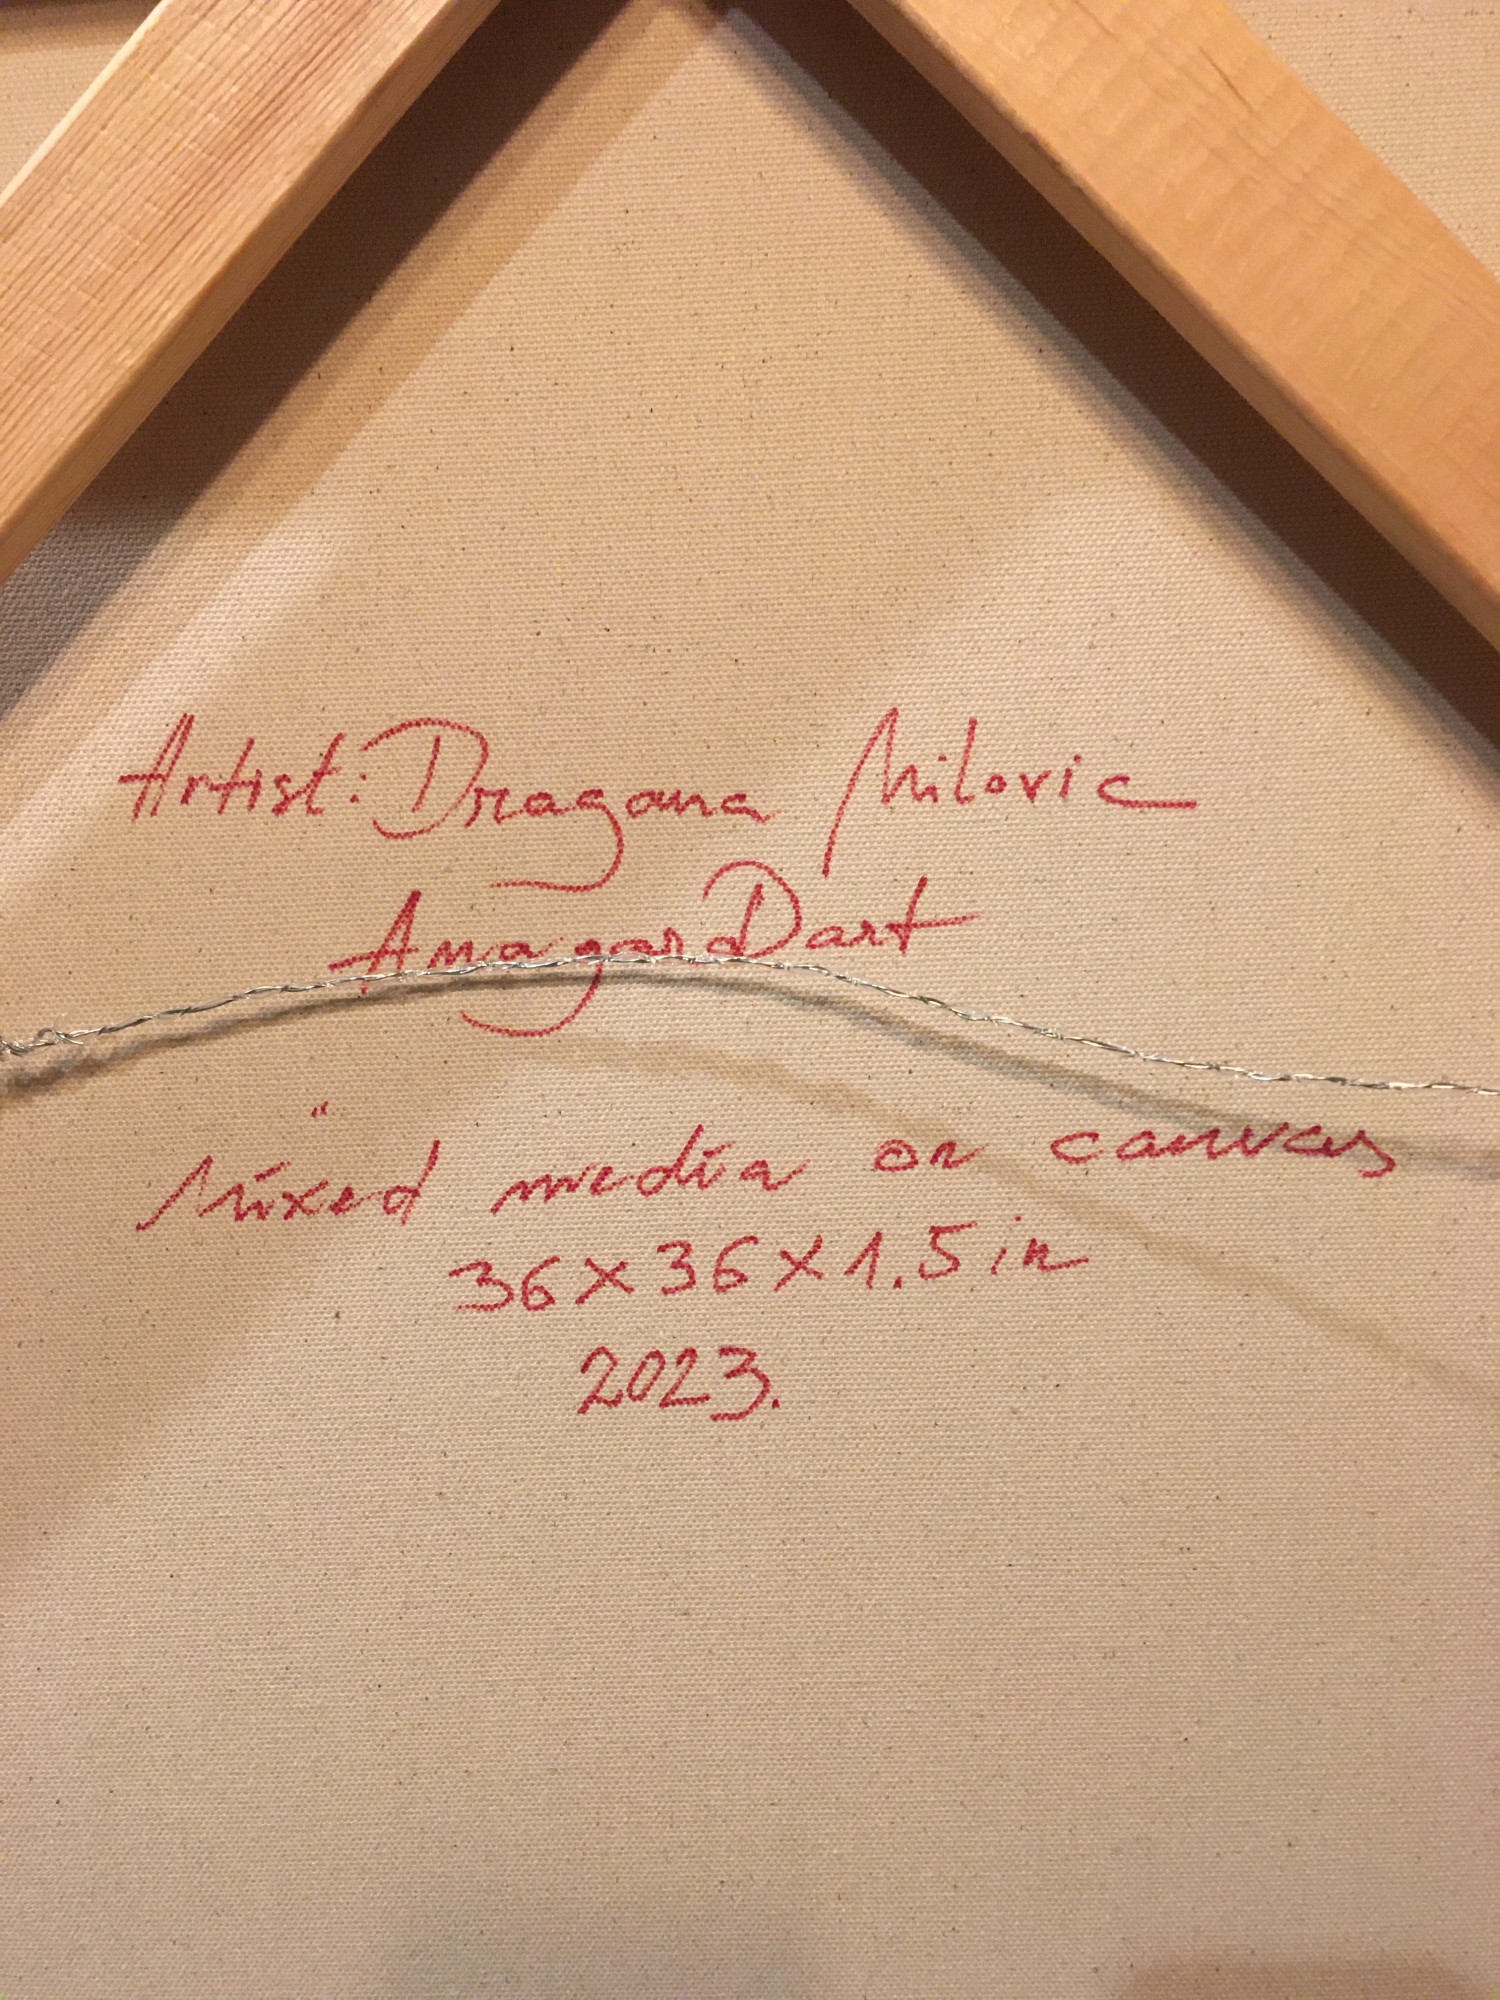 Artist: Dragana Milovic
AnagarDart
"
Mixed media on canvas
36x36x1.5 in
2023.